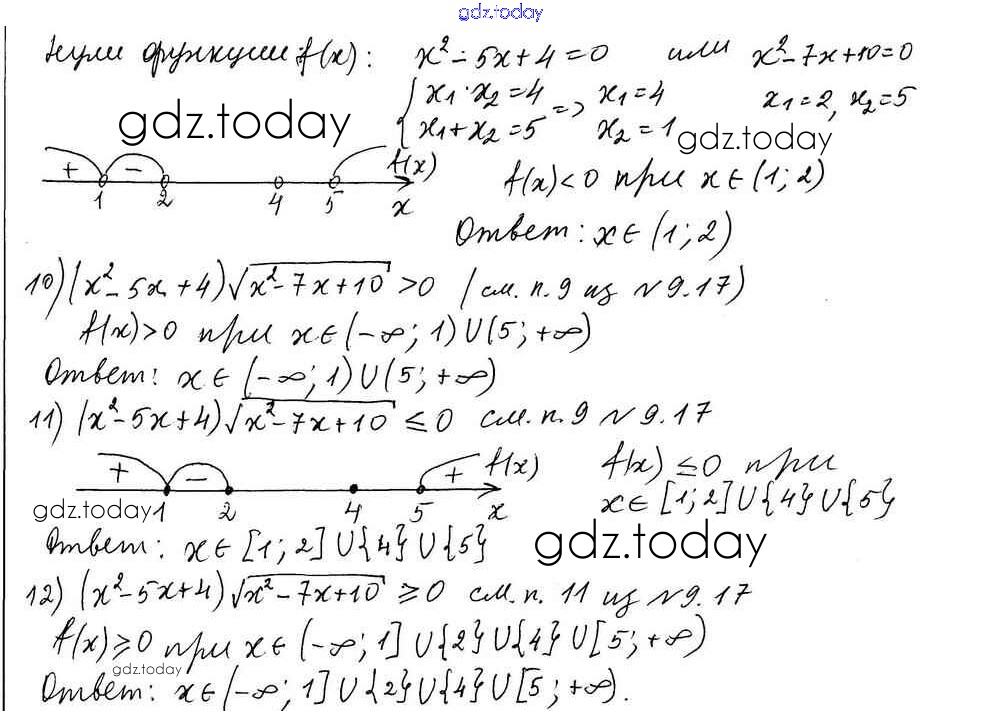 gdz.today
Нули функции f(x): x² - 5x + 4 = 0 или x² - 7x + 10 = 0
{ x₁ · x₂ = 4 => x₁ = 4 x₁ = 2, x₂ = 5
x₁ + x₂ = 5 x₂ = 1
gdz.today gdz.today
+ - f(x)
1 2 4 5 x
f(x) < 0 при x ∈ (1; 2)
Ответ: x ∈ (1; 2)
10) (x² - 5x + 4)√(x² - 7x + 10) > 0 (см. п. 9 из №9.17)
f(x) > 0 при x ∈ (-∞; 1) ∪ (5; +∞)
Ответ: x ∈ (-∞; 1) ∪ (5; +∞)
11) (x² - 5x + 4)√(x² - 7x + 10) ≤ 0 см. п. 9 №9.17
+ - + f(x)
1 2 4 5 x
f(x) ≤ 0 при
x ∈ [1; 2] ∪ {4} ∪ {5}
gdz.today
Ответ: x ∈ [1; 2] ∪ {4} ∪ {5}
gdz.today
12) (x² - 5x + 4)√(x² - 7x + 10) ≥ 0 см. п. 11 из №9.17
f(x) ≥ 0 при x ∈ (-∞; 1] ∪ {2} ∪ {4} ∪ [5; +∞)
gdz.today
Ответ: x ∈ (-∞; 1] ∪ {2} ∪ {4} ∪ [5; +∞).